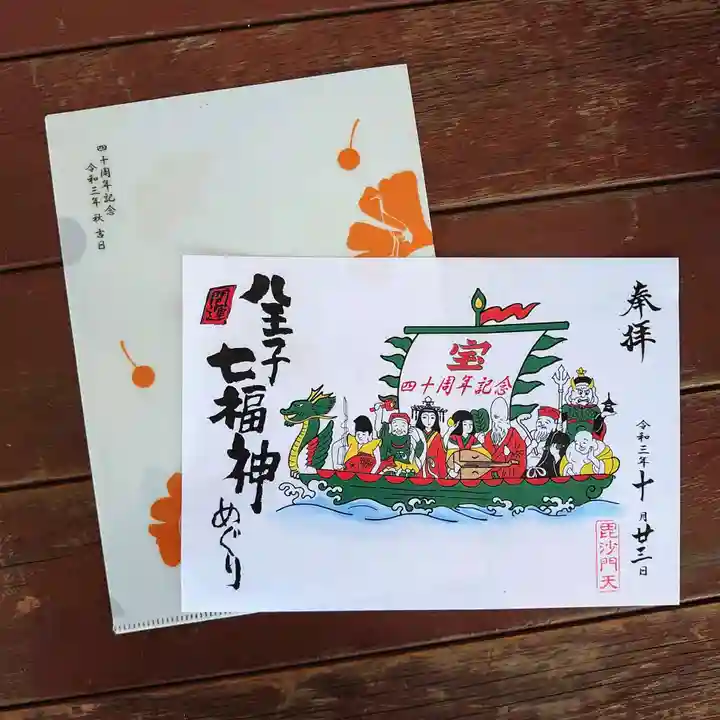 四十周年記念
令和三年 秋 吉日
奉拝
令和三年十月廿三日
毘沙門天
宝
四十周年記念
開運
八王子
七福神
めぐり